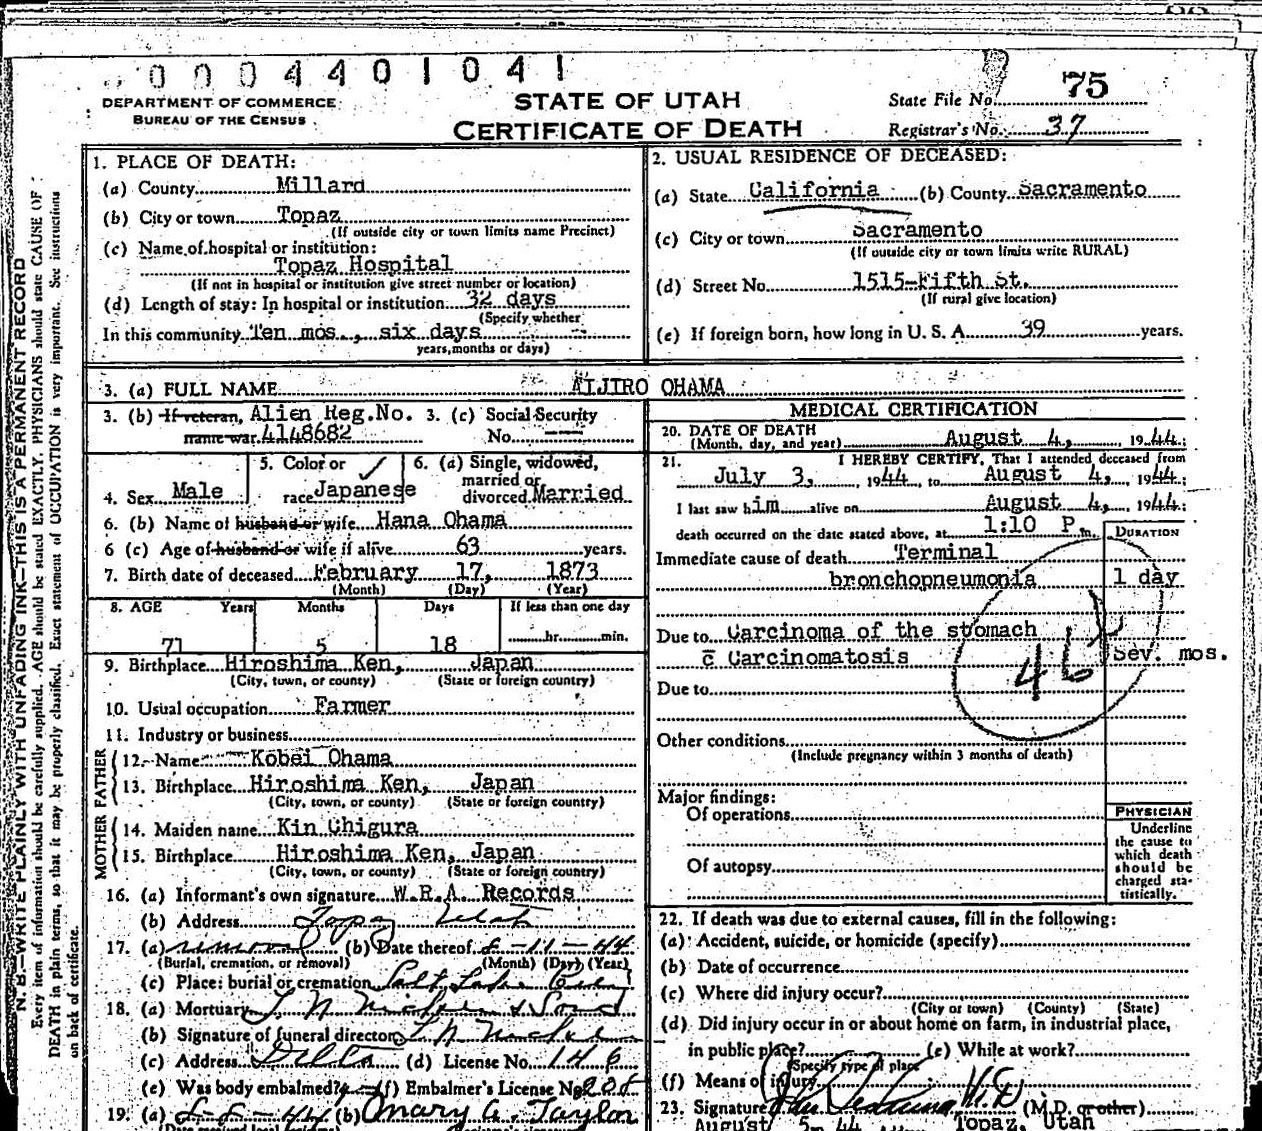 0 0 0 4 4 0 1 0 4 1
DEPARTMENT OF COMMERCE
BUREAU OF THE CENSUS
STATE OF UTAH
CERTIFICATE OF DEATH
State File No. 75
Registrar's No. 37
N. B.—WRITE PLAINLY WITH UNFADING INK—THIS IS A PERMANENT RECORD
Every item of information should be carefully supplied. AGE should be stated EXACTLY. PHYSICIANS should state CAUSE OF
DEATH in plain terms, so that it may be properly classified. Exact statement of OCCUPATION is very important. See instructions
on back of certificate.
1. PLACE OF DEATH:
(a) County Millard
(b) City or town Topaz
(If outside city or town limits name Precinct)
(c) Name of hospital or institution:
Topaz Hospital
(If not in hospital or institution give street number or location)
(d) Length of stay: In hospital or institution 32 days
(Specify whether
In this community Ten mos., six days
years, months or days)
2. USUAL RESIDENCE OF DECEASED:
(a) State California (b) County Sacramento
(c) City or town Sacramento
(If outside city or town limits write RURAL)
(d) Street No. 1515-Fifth St.
(If rural give location)
(e) If foreign born, how long in U. S. A. 39 years.
3. (a) FULL NAME AIJIRO OHAMA
3. (b) If veteran, Alien Reg.No. 3. (c) Social Security
name war 4148682 No. ---
4. Sex Male
5. Color or race Japanese
6. (a) Single, widowed, married or divorced Married
6. (b) Name of husband or wife Hana Ohama
6 (c) Age of husband or wife if alive 63 years.
7. Birth date of deceased February 17, 1873
(Month) (Day) (Year)
8. AGE Years Months Days If less than one day
71 5 18 hr. min.
9. Birthplace Hiroshima Ken, Japan
(City, town, or county) (State or foreign country)
10. Usual occupation Farmer
11. Industry or business
FATHER
12. Name Kobei Ohama
13. Birthplace Hiroshima Ken, Japan
(City, town, or county) (State or foreign country)
MOTHER
14. Maiden name Kin Chigura
15. Birthplace Hiroshima Ken, Japan
(City, town, or county) (State or foreign country)
16. (a) Informant's own signature W.R.A. Records
(b) Address Topaz Utah
17. (a) removal (b) Date thereof 8-11-44
(Burial, cremation, or removal) (Month) (Day) (Year)
(c) Place: burial or cremation Salt Lake
18. (a) Mortuary
(b) Signature of funeral director
(c) Address Delta (d) License No. 146
(e) Was body embalmed? (f) Embalmer's License No. 208
19. (a) 8-8-44 (b) Mary A. Taylor
MEDICAL CERTIFICATION
20. DATE OF DEATH
(Month, day, and year) August 4, 1944
21. I HEREBY CERTIFY, That I attended deceased from
July 3, 1944, to August 4, 1944;
I last saw him alive on August 4, 1944;
death occurred on the date stated above, at 1:10 P.m.
DURATION
Immediate cause of death Terminal
bronchopneumonia 1 day
Due to Carcinoma of the stomach
c̄ Carcinomatosis Sev. mos.
46
Due to
Other conditions
(Include pregnancy within 3 months of death)
Major findings:
Of operations
Of autopsy
PHYSICIAN
Underline
the cause to
which death
should be
charged sta-
tistically.
22. If death was due to external causes, fill in the following:
(a) Accident, suicide, or homicide (specify)
(b) Date of occurrence
(c) Where did injury occur?
(City or town) (County) (State)
(d) Did injury occur in or about home on farm, in industrial place,
in public place? (e) While at work?
(Specify type of place
(f) Means of injury
23. Signature M.D (M.D. or other)
August 5, 44 Topaz, Utah